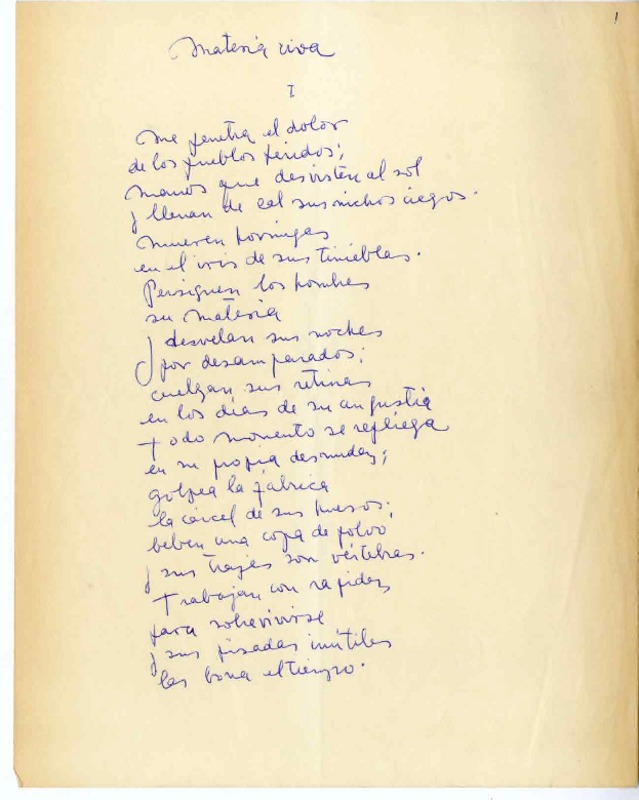 1
Materia viva
I
Me penetra el dolor
de los pueblos heridos;
manos que desvisten al sol
y llenan de cal sus nichos ciegos.
Mueren hormigas
en el iris de sus tinieblas.
Persiguen los hombres
su materia
y desvelan sus noches
por desamparados;
cuelgan sus retinas
en los días de su angustia
Todo momento se repliega
en su propia desnudez;
golpea la fábrica
la cárcel de sus huesos;
beben una copa de polvo
y sus trajes son vértebras.
Trabajan con rapidez
para sobrevivirse
y sus pisadas inútiles
las borra el tiempo.